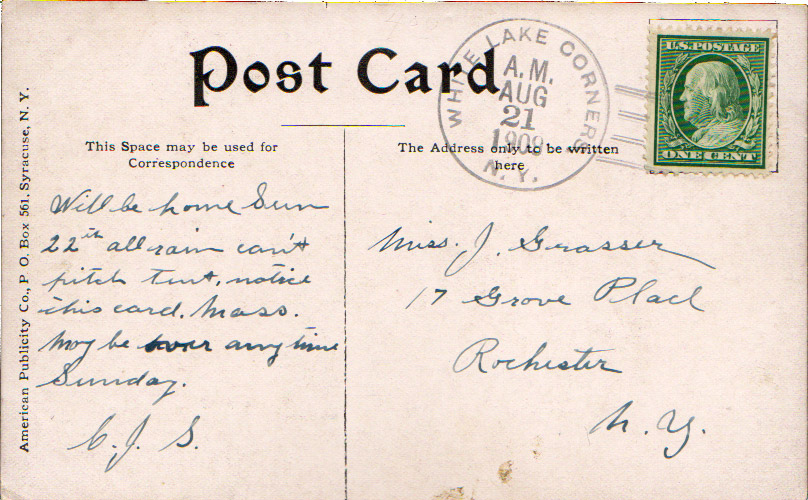 Post Card
WHITE LAKE CORNERS
A.M.
AUG
21
1909
N. Y.
U.S. POSTAGE
ONE CENT
This Space may be used for
Correspondence
The Address only to be written
here
American Publicity Co., P O. Box 561, Syracuse, N. Y.
Will be home Sun
22th all rain can't
pitch tent, notice
this card. Mass.
May be over anytime
Sunday.
C. J. S.
Miss. J. Grasser
17 Grove Place
Rochester
N. Y.